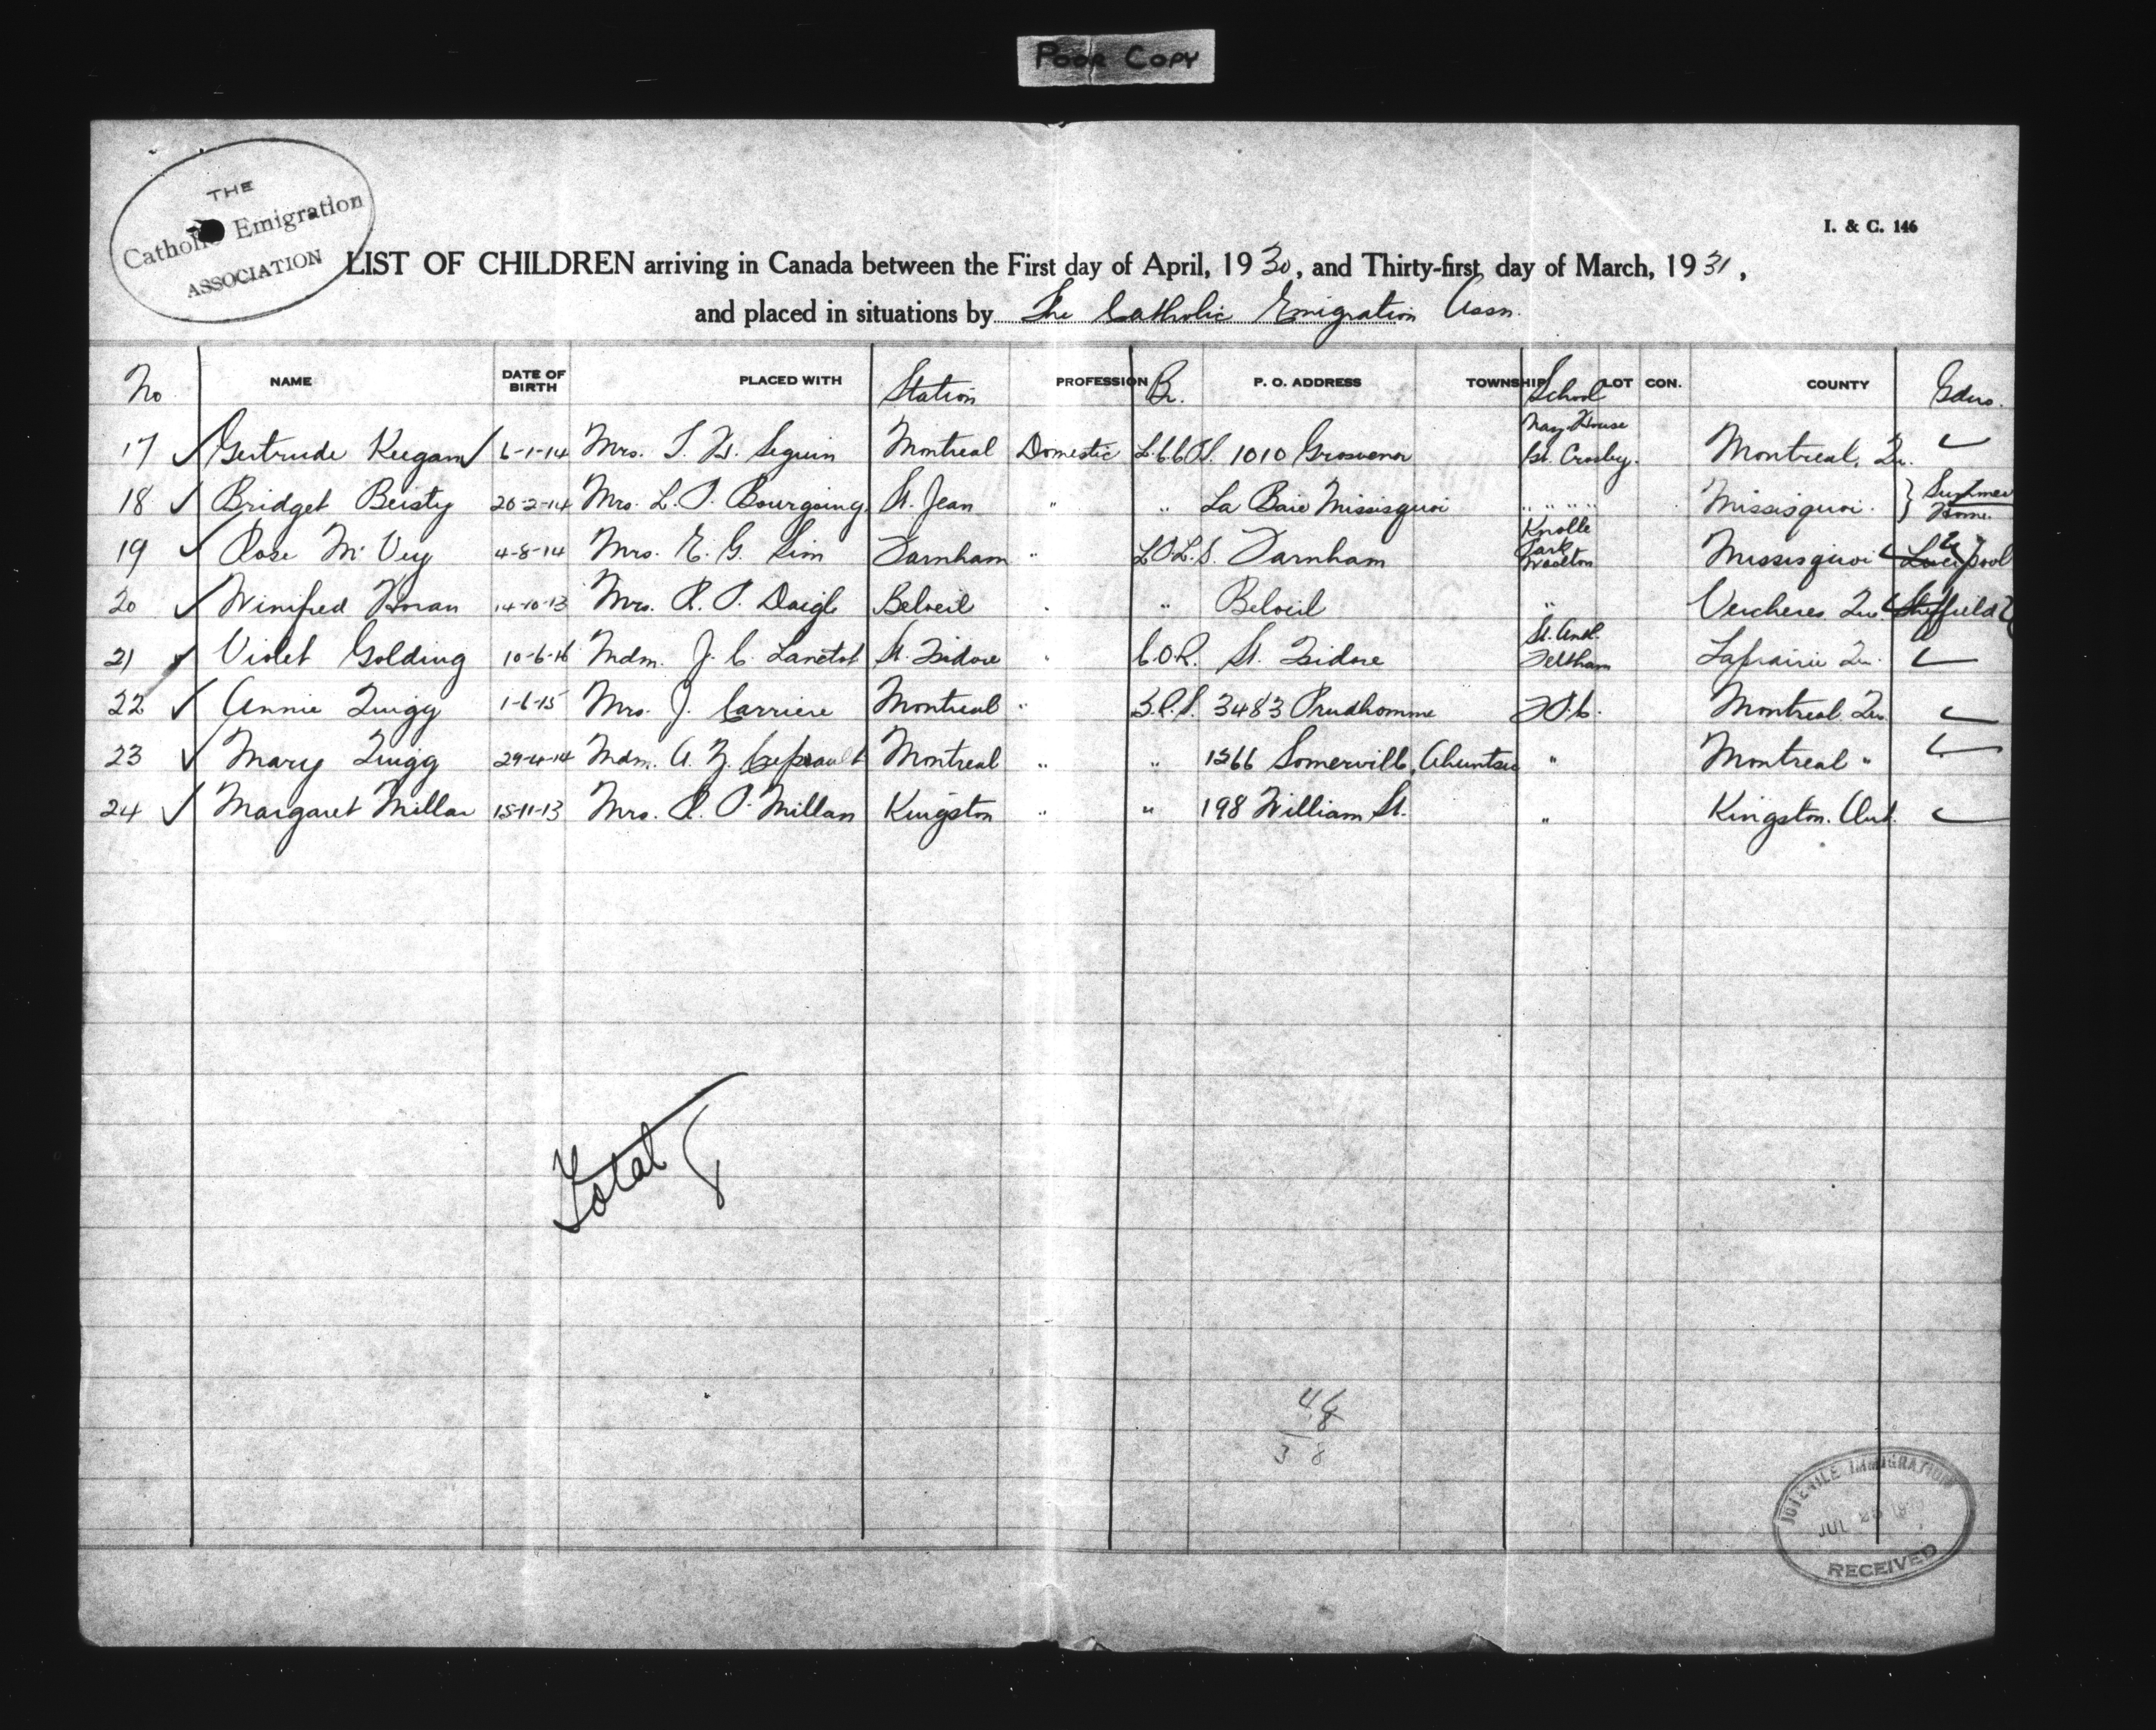 POOR COPY
THE
Catholic Emigration
ASSOCIATION
I. & C. 146
LIST OF CHILDREN arriving in Canada between the First day of April, 1930, and Thirty-first day of March, 1931,
and placed in situations by The Catholic Emigration Assn.
No NAME DATE OF BIRTH PLACED WITH Station PROFESSION Br. P. O. ADDRESS TOWNSHIP School LOT CON. COUNTY Gdns.
17 Gertrude Keegan 6-1-14 Mrs. T. H. Seguin Montreal Domestic 1010 Grosvenor Naz. House Gt. Crosby. Montreal, Qu.
18 Bridget Beisty 20-2-14 Mrs. L. P. Bourgoing St. Jean " " La Baie Missisquoi " " " " Missisquoi. } Summer Home.
19 Rose McVey 4-8-14 Mrs. E. G. Sim Farnham " L.O.L.S. Farnham Knolle Park Woolton Missisquoi Liverpool
20 Winifred Horan 14-10-13 Mrs. R. P. Daigle Beloeil " " Beloeil " Vercheres Que. Sheffield
21 Violet Golding 10-6-16 Mdm. J. C. Lanctot St. Isidore " C.O.R. St. Isidore St. Ant. Feltham Laprairie Qu.
22 Annie Quigg 1-6-15 Mrs. J. Carriere Montreal " 3483 Prudhomme Montreal Qu.
23 Mary Quigg 29-4-14 Mdm. A. Z. Montreal " " 1266 Somervill, Ahuntsic " Montreal "
24 Margaret Millar 15-11-13 Mrs. R. P. Millan Kingston " " 198 William St. " Kingston. Ont.
Total 8
3 8
JUVENILE IMMIGRATION
JUL 25
RECEIVED